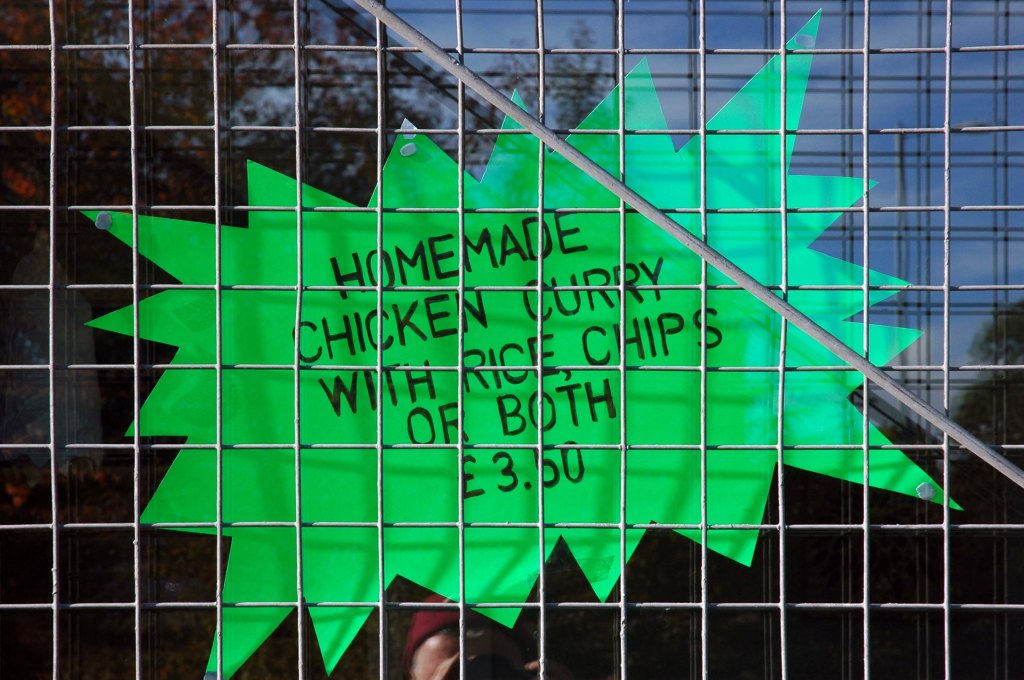 HOMEMADE
CHICKEN CURRY
WITH RICE, CHIPS
OR BOTH
£3.50